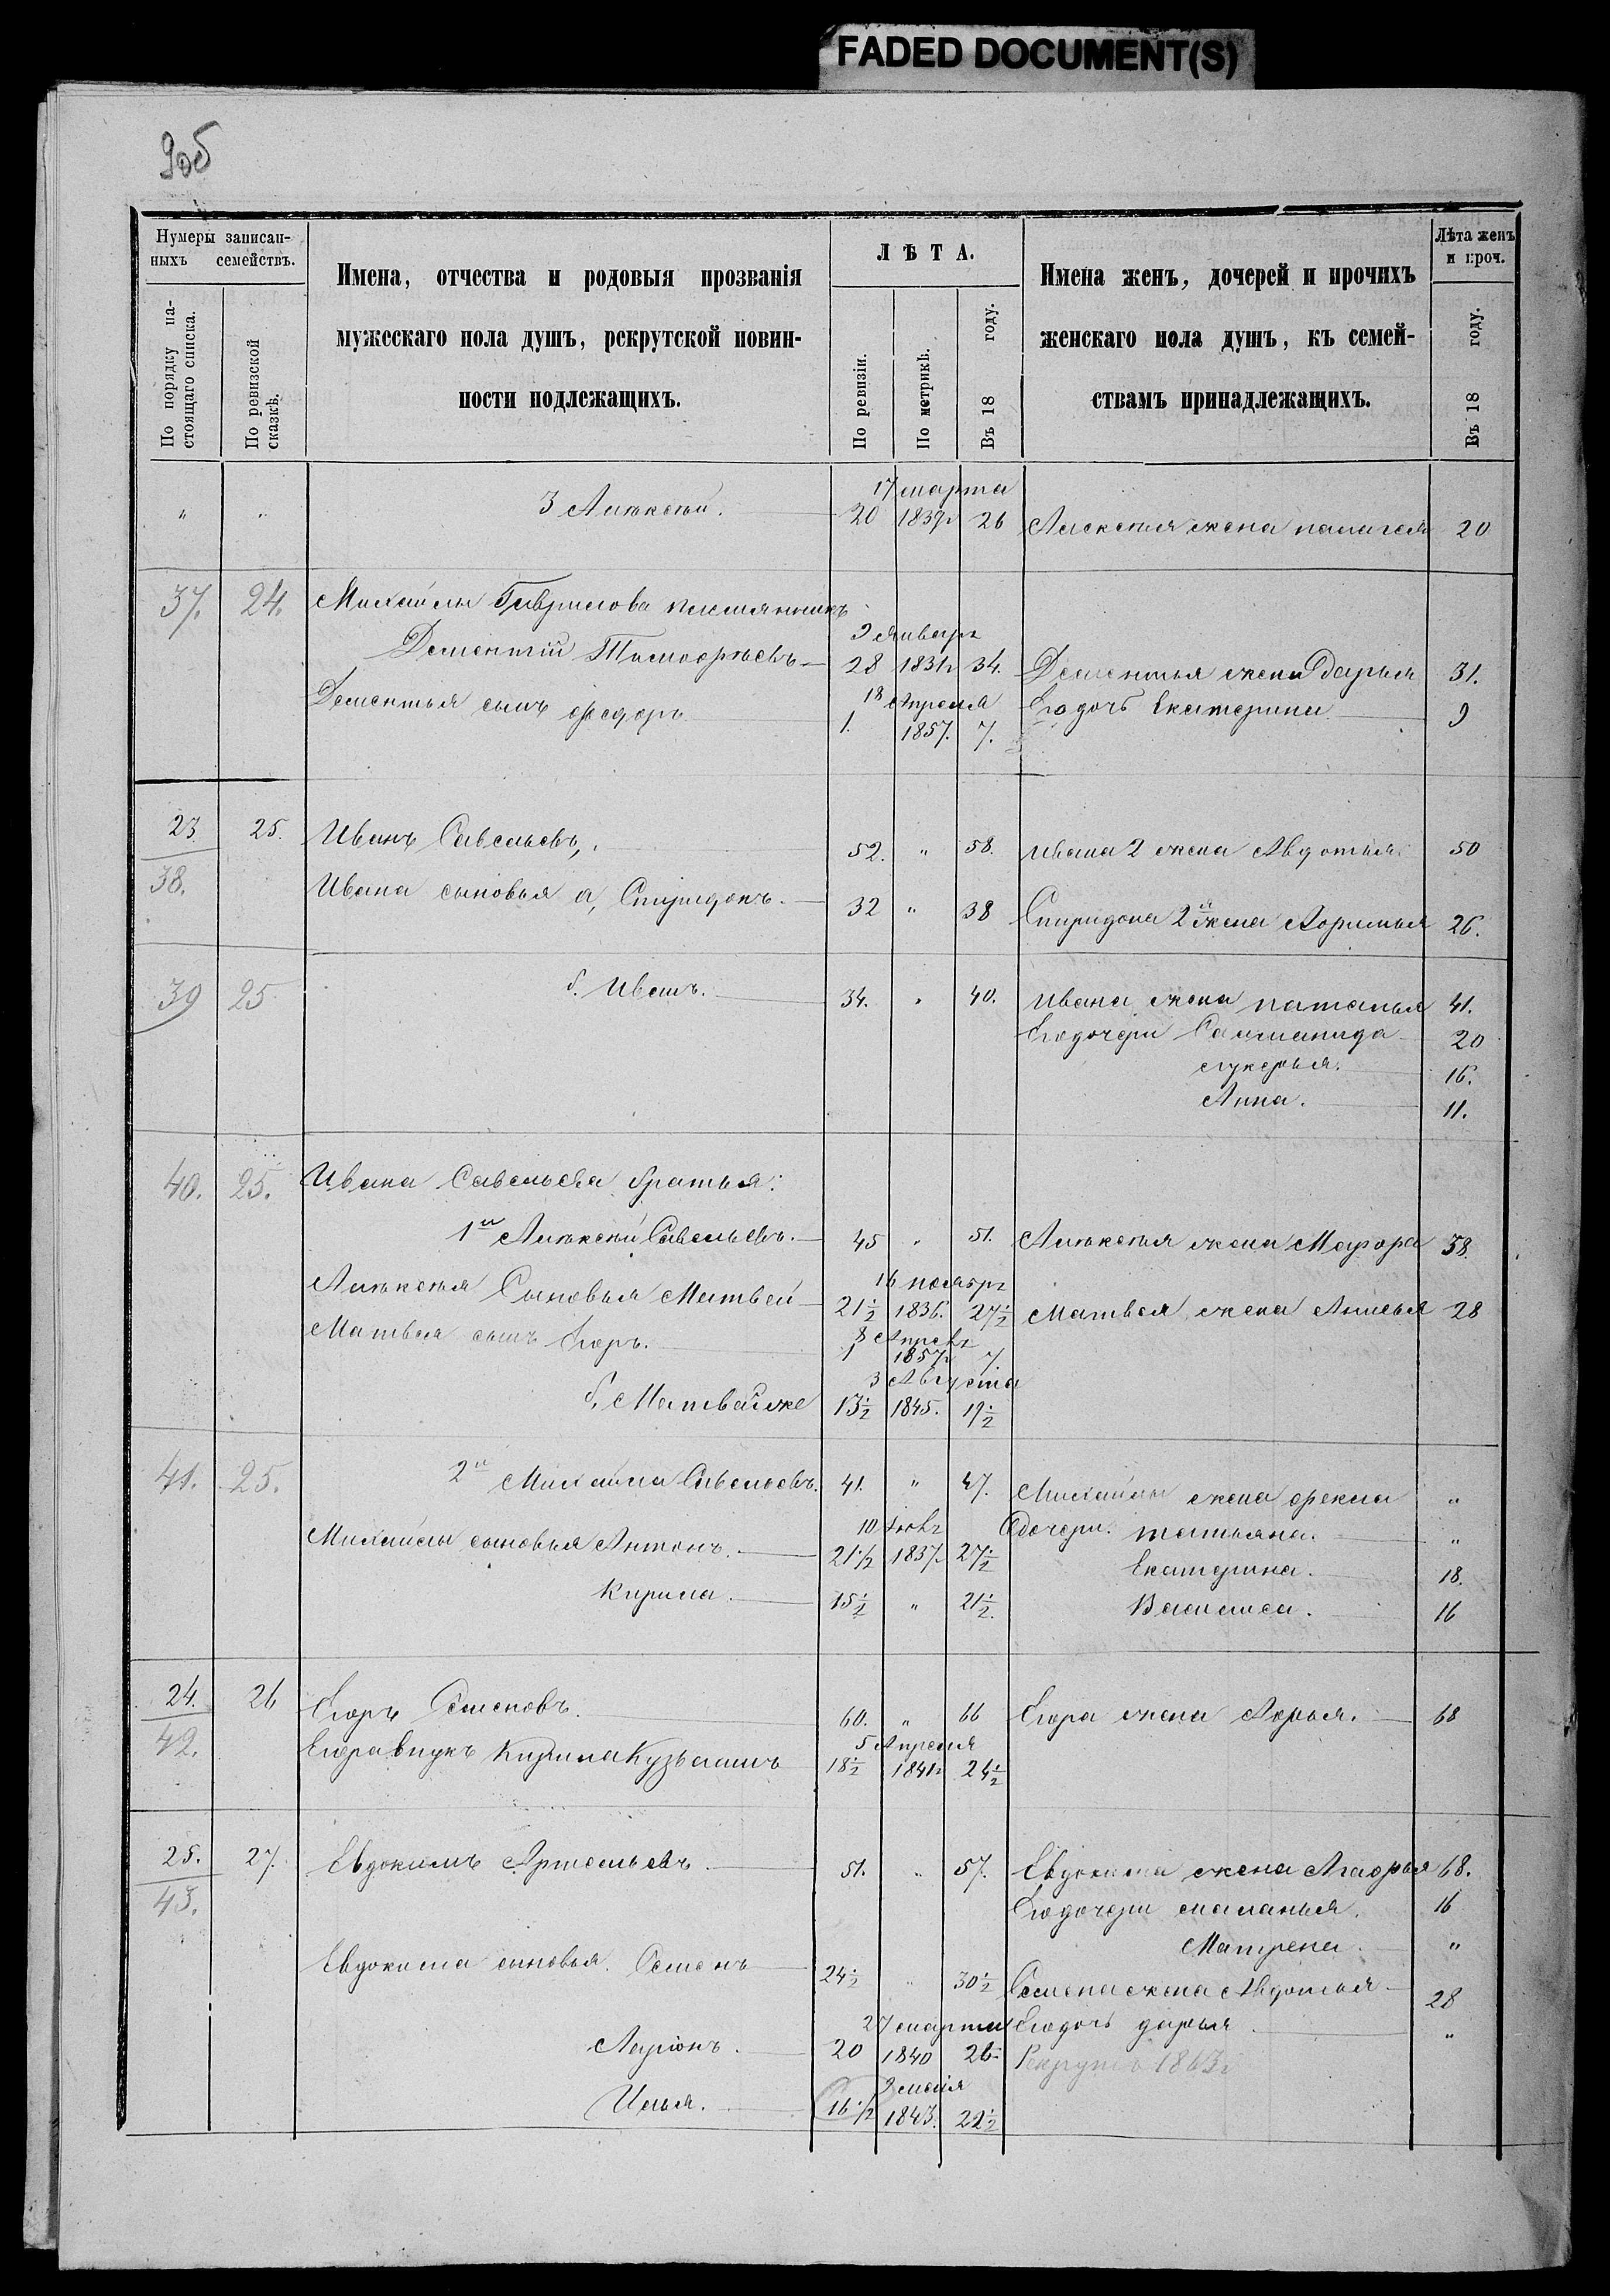 FADED DOCUMENT(S)
Нумеры записан-
ныхъ семействъ.
По порядку на-
стоящаго списка.
По ревизской
сказкѣ.
Имена, отчества и родовыя прозванія
мужескаго пола душъ, рекрутской повин-
ности подлежащихъ.
ЛѢТА.
По ревизіи.
По метрикѣ.
Въ 18 году.
Имена женъ, дочерей и прочихъ
женскаго пола душъ, къ семей-
ствамъ принадлежащихъ.
Лѣта женъ
и проч.
Въ 18 году.
17 марта
" " 3 Алѣксѣй. 20 1839г 26 Алексѣя жена палагея 20
37. 24. Михайлы Гаврилова племянникъ
9 января
Дементий Тимоѳѣевъ 28 1831г 34. Дементья жена Дарья 31.
18 Апреля
Дементья сынъ ѳедоръ 1. 1857. 7. Егодочь Екатерина 9
23 25. Иванъ Савельевъ, 52. " 58. ивана 2 жена Авдотья 50
38. Ивана сыновья а, Спиридонъ. 32 " 38 Спиридона 2я жена 26.
39 25 б. Иванъ. 34. " 40. ивана жена наталья 41.
Егодочери 20
лукерья. 16.
Анна. 11.
40. 25. Ивана Савельева братья:
1й Алѣксѣй Савельевъ. 45 " 51. Алѣксѣя жена 38.
16 ноября
Алѣксѣя Сыновья Матвей 21½ 1836. 27½ Матвея жена Анисья 28
8
Матвея сынъ Егоръ. 1 1857г 7.
3 Августа
б. Матвей же 13½ 1845. 19½
41. 25. 2й Михайла Савельевъ. 41. " 47. Михайлы жена ѳекла "
10
дочери. татьяна. "
Михайлы сыновья Антонъ. 21½ 1837г 27½
Екатерина. 18.
Кирила. 15½ " 21½. Василиса. 16
24. 26 Егоръ Семеновъ. 60. " 66 Егора жена 68
42. 5 Апреля
Егора внукъ Кирила Кузьминъ 18½ 1841г 24½
25. 27. Евдокимъ Артемьевъ. 51. " 57. Евдокима жена Агаѳья 68.
43. Егодочери маланья. 16
Матрена. "
Евдокима сыновья. Семенъ 24½ " 30½ Семена жена Авдотья 28
27 марта Егодочь дарья "
Ларіонъ. 20 1840 26 Рекрутъ 1863г
9 мая
Илья. 16½ 1843. 22½